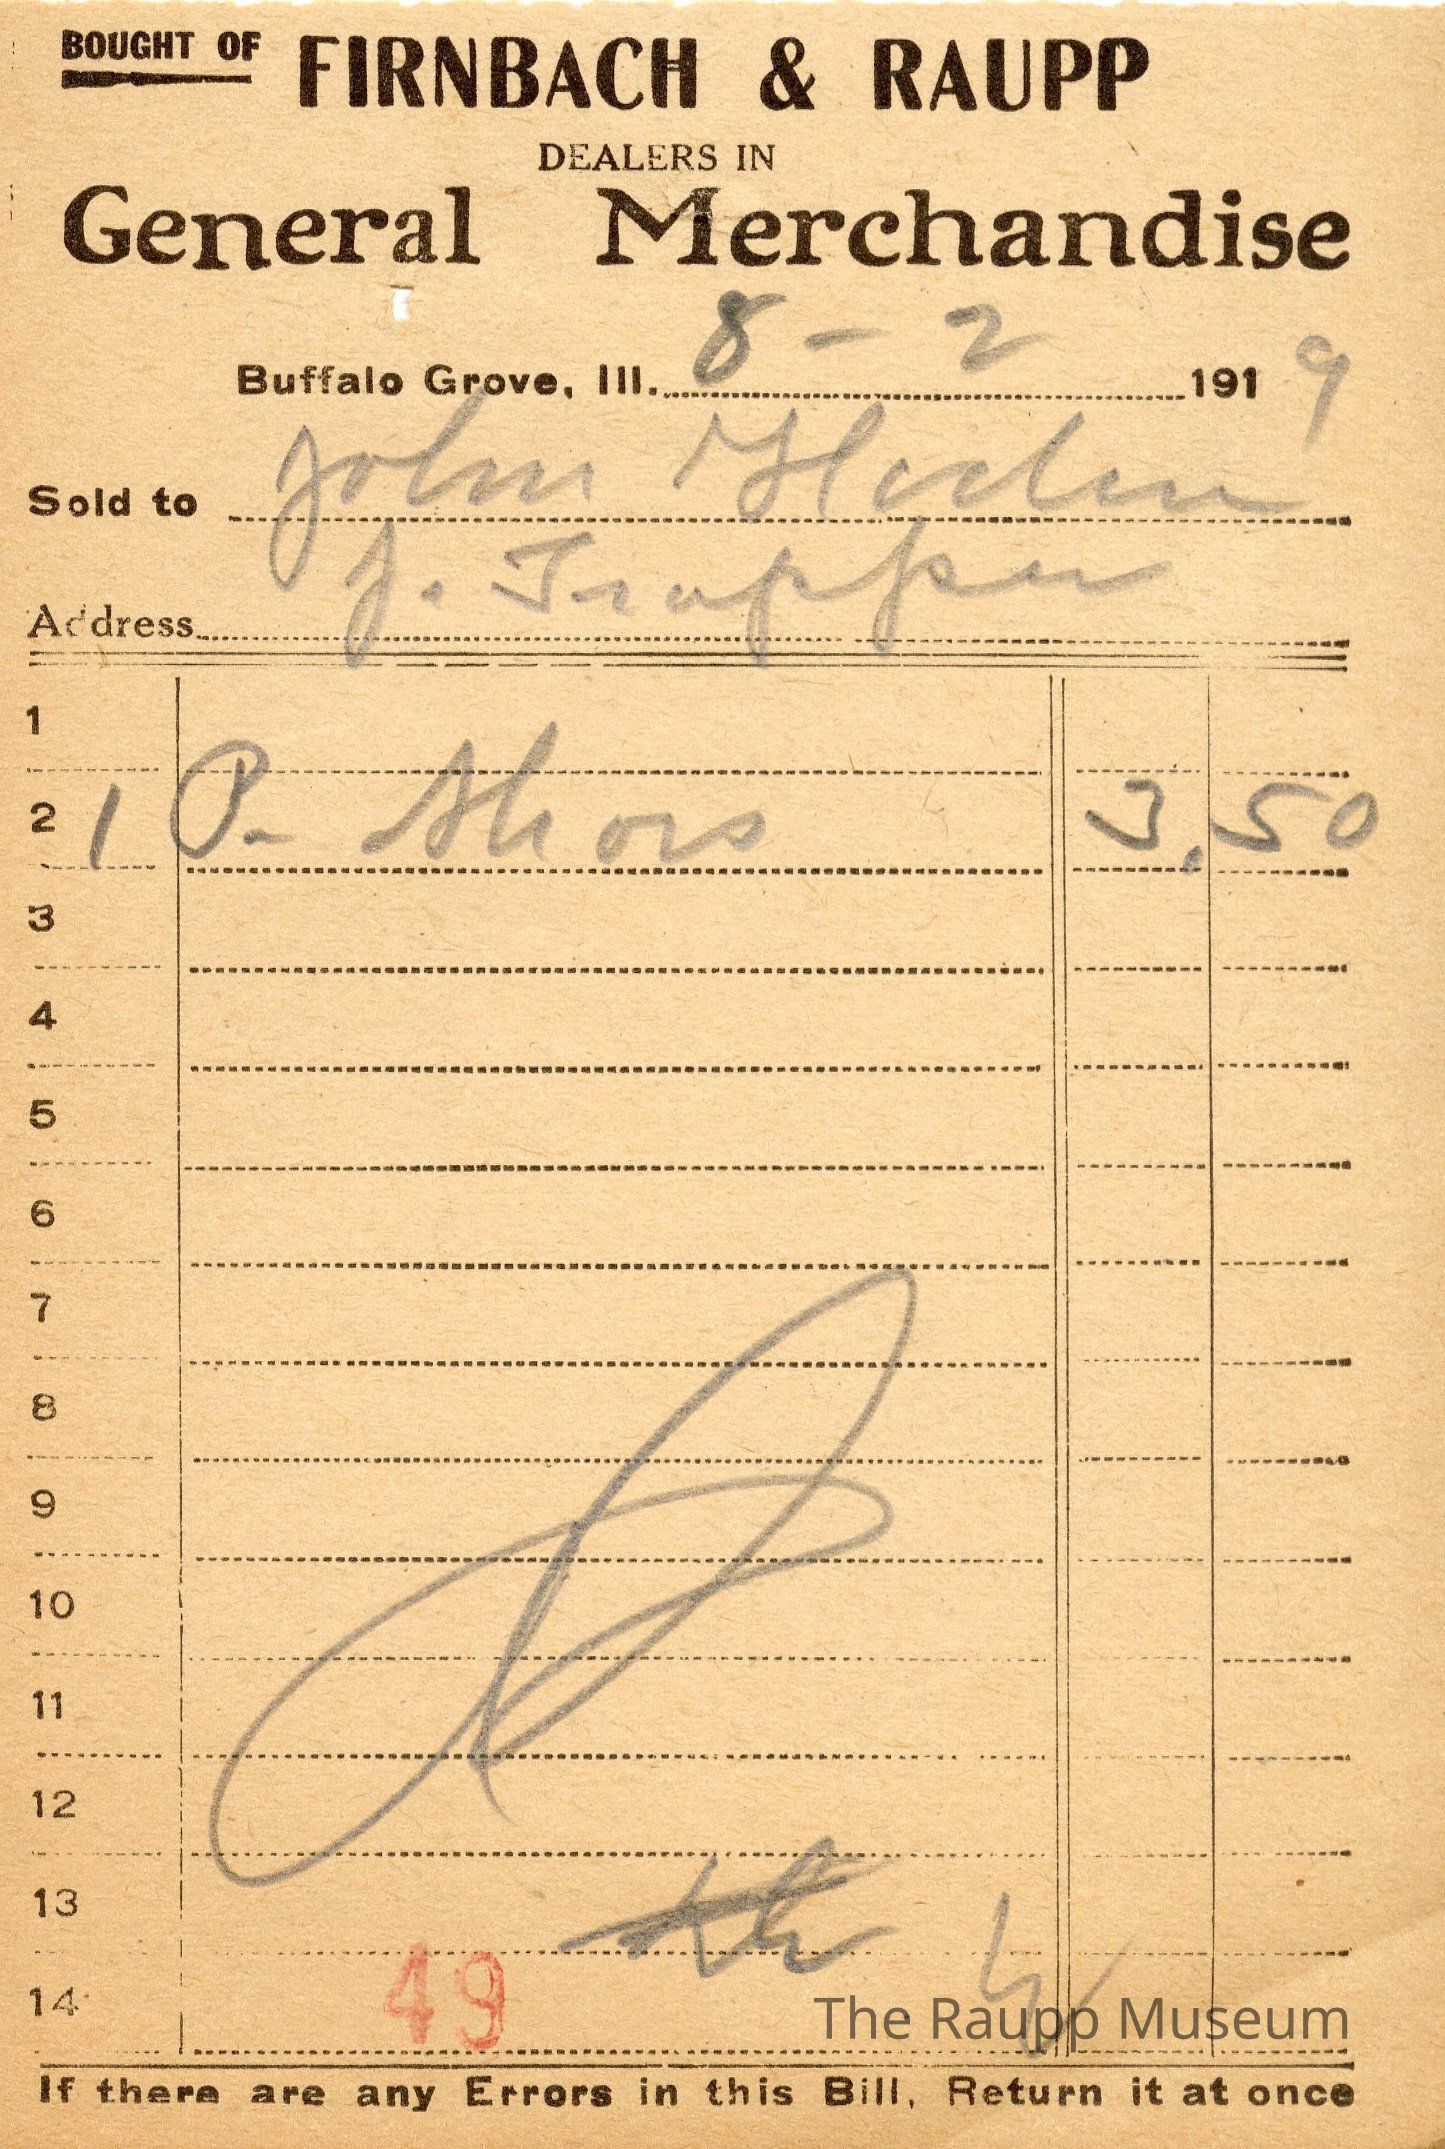 BOUGHT OF FIRNBACH & RAUPP
DEALERS IN
General Merchandise
Buffalo Grove, Ill. 8 - 2 1919
Sold to John
Address J.
1
2 1 P. Shoes 3.50
3
4
5
6
7
8
9
10
11
12
13
14 49
The Raupp Museum
If there are any Errors in this Bill, Return it at once